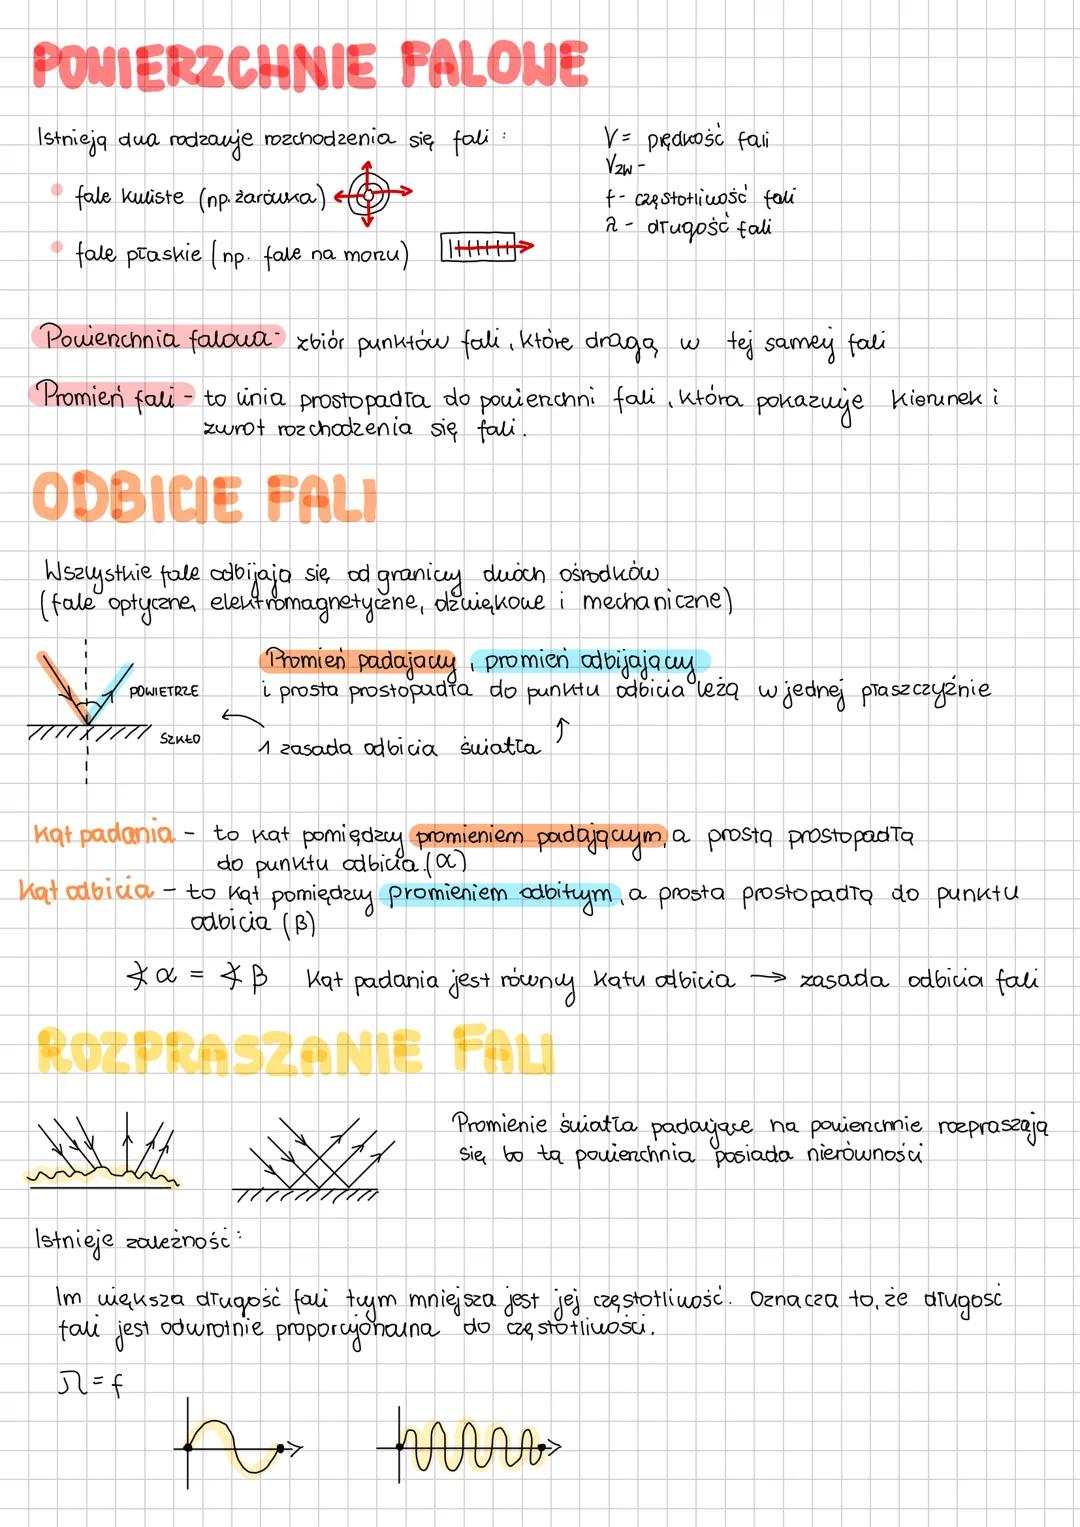 POWIERZCHNIE FALOWE
Istnieją dwa rodzaje rozchodzenia się fali :
• fale kuliste (np. żarówka)
• fale płaskie (np. fale na morzu)
V = prędkość fali
Vzw -
f - częstotliwość fali
λ - długość fali
Powierzchnia falowa - zbiór punktów fali, które drągą w tej samej fali
Promień fali - to linia prostopadła do powierzchni fali, która pokazuje kierunek i
zwrot rozchodzenia się fali.
ODBICIE FALI
Wszystkie fale odbijają się od granicy dwóch ośrodków
(fale optyczne, elektromagnetyczne, dźwiękowe i mechaniczne)
POWIETRZE
SZKŁO
Promień padający, promień odbijający
i prosta prostopadła do punktu odbicia leżą w jednej płaszczyźnie
1 zasada odbicia światła
Kąt padania - to kąt pomiędzy promieniem padającym, a prostą prostopadłą
do punktu odbicia (α)
Kąt odbicia - to kąt pomiędzy promieniem odbitym, a prosta prostopadłą do punktu
odbicia (β)
∢α = ∢β Kąt padania jest równy kątu odbicia → zasada odbicia fali
ROZPRASZANIE FALI
Promienie światła padające na powierzchnie rozpraszają
się bo tą powierzchnia posiada nierówności
Istnieje zależność:
Im większa długość fali tym mniejsza jest jej częstotliwość. Oznacza to, że długość
fali jest odwrotnie proporcjonalna do częstotliwości.
λ = f